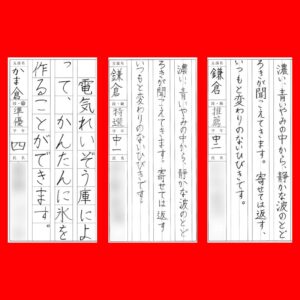 濃い、青いやみの中から、静かな波のとど
ろきが聞こえてきます。寄せては返す、
いつもと変わりのないひびきです。
鎌倉 推薦 中二 氏名
濃い、青いやみの中から、静かな波のとど
ろきが聞こえてきます。寄せては返す、
いつもと変わりのないひびきです。
鎌倉 特選 中一 氏名
電気れいぞう庫によ
って、かんたんに氷を
作ることができます。
かま倉 準優 四 氏名